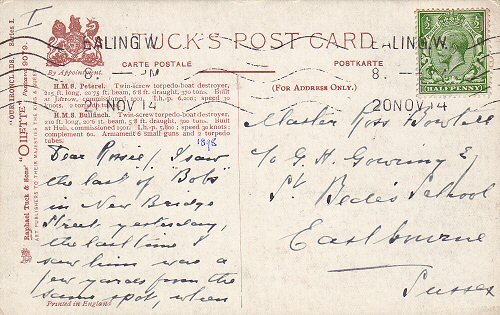 I
EALING.W.
8. PM
20 NOV 14
EALING.W.
8.
20 NOV 14
TUCK'S POST CARD
CARTE POSTALE
POSTKARTE
By Appointment.
(FOR ADDRESS ONLY.)
HALFPENNY
"OUR IRONCLADS." SERIES I.
"OILETTE" POSTCARD 9079.
Raphael Tuck & Sons'
ART PUBLISHERS TO THEIR MAJESTIES THE KING
H.M.S. Peterel. Twin-screw torpedo-boat destroyer,
215 ft. long, 20.75 ft. beam, 6.8 ft. draught, 370 tons. Built
at Jarrow, commissioned 1901. I.h.p. 6,200; speed 30
knots.
H.M.S. Bullfinch. Twin-screw torpedo-boat destroyer,
210 ft. long, 20.6 ft. beam, 5.8 ft. draught, 300 tons. Built
at Hull, commissioned 1901. I.h.p. 5,800; speed 30 knots;
complement 60. Armament 6 small guns and 2 torpedo
tubes.
1898
Dear Rossie, I saw
the last of "Bobs"
in New Bridge
Street yesterday,
the last time I
saw him was a
few yards from the
same spot, when
Printed in England
Master Ross
To G. H. Gowring
St Bede's School
Eastbourne
Sussex